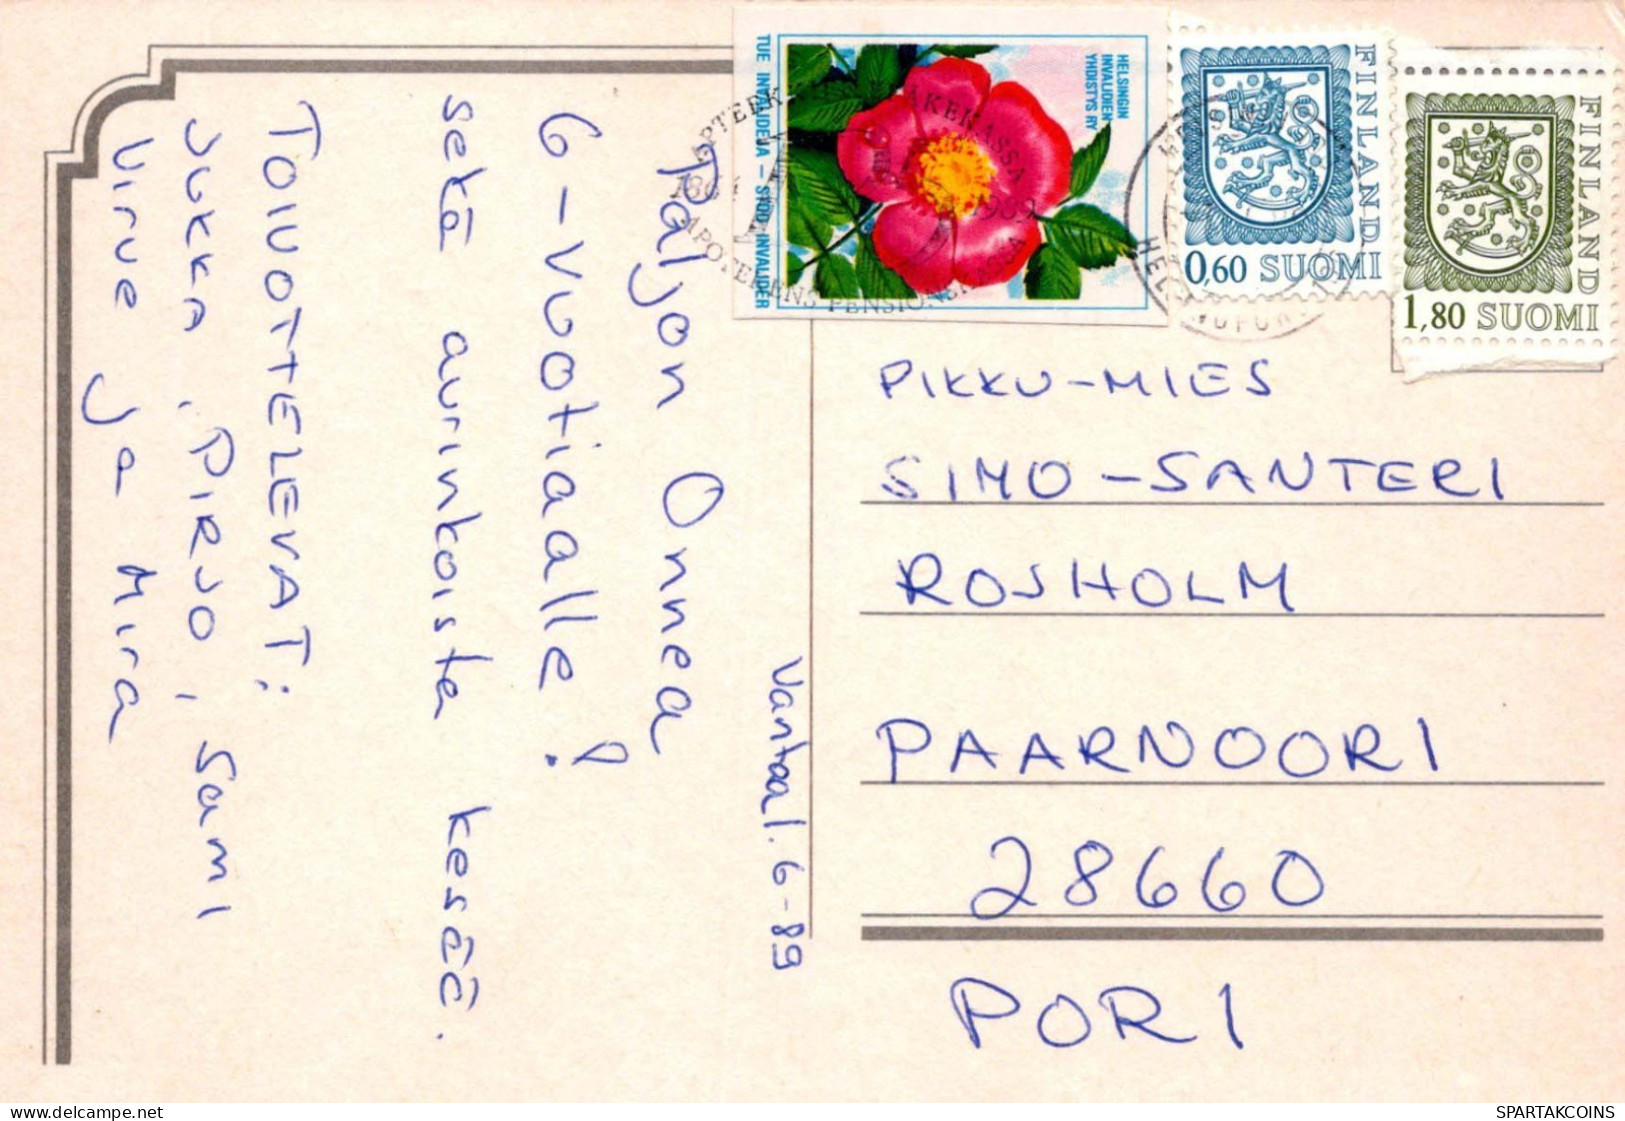 Vantaal. 6-89
Paljon Onnea
6-vuotiaalle!
sekä aurinkoista kesää.
TOIVOTTELEVAT:
JUKKA, PIRJO, Sami
Virve ja Mira
TUE INVALIDEJA – STÖD INVALIDER
HELSINGIN
INVALIDIEN
YHDISTYS RY
APOTEKENS PENSIONSKASSA
1989
FINLAND
0,60 SUOMI
FINLAND
1,80 SUOMI
PIKKU-MIES
SIMO-SANTERI
ROSHOLM
PAARNOORI
28660
PORI
www.delcampe.net
SPARTAKCOINS